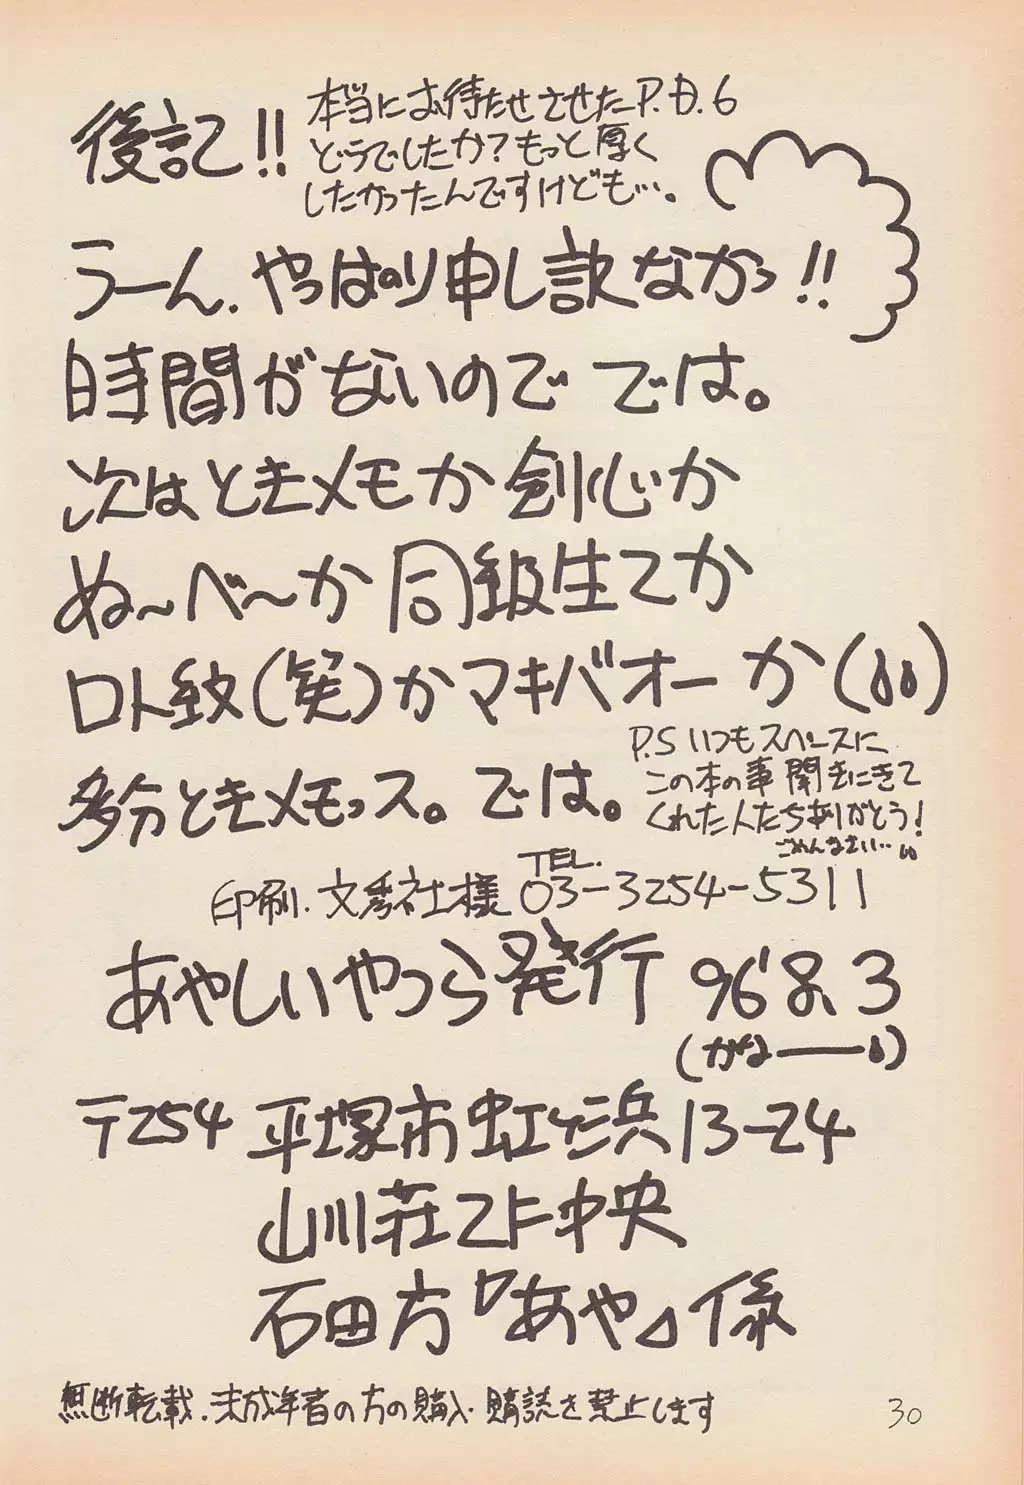 後記!!
本当にお待たせさせたP.D.6
どうでしたか?もっと厚く
したかったんですけども…。
うーん、やっぱり申し訳なかっ!!
時間がないので では。
次はときメモか剣心か
ぬ〜べ〜か同級生2か
ロト紋(笑)かマキバオーか
多分ときメモっス。では。
P.S いつもスペースに
この本の事聞きにきて
くれた人たちありがとう!
ごめんなさい…
印刷.文秀社様 TEL.03-3254-5311
あやしいやつら発行 96'8、3
(かな——)
〒254 平塚市虹ヶ浜13-24
山川荘2F中央
石田方『あや』係
無断転載、未成年者の方の購入・購読を禁止します
30